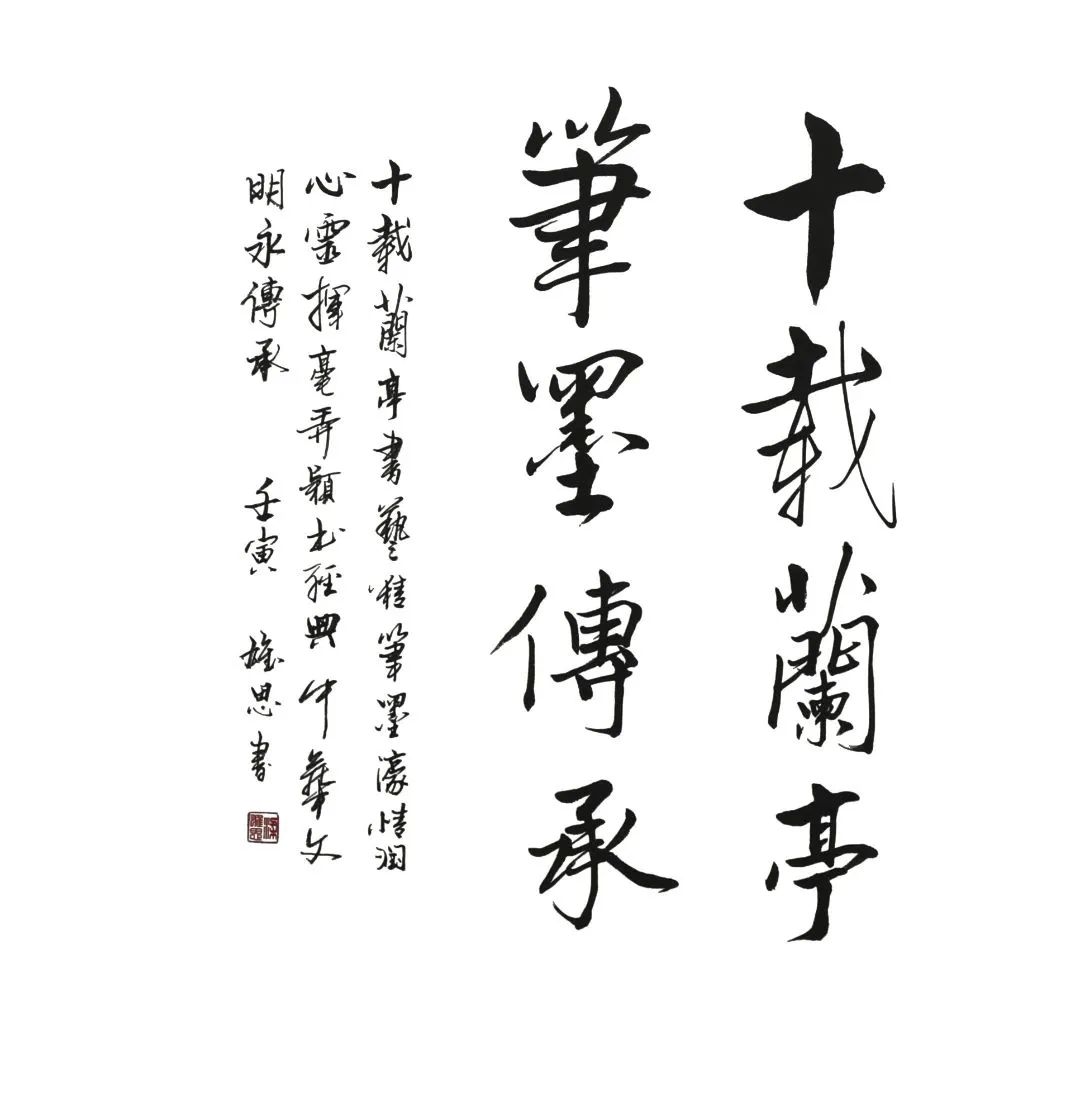 十載蘭亭
筆墨傳承
十載蘭亭書藝精筆墨濠情润
心靈揮毫弄穎出經典中華文
明永傳承 壬寅 雄思書